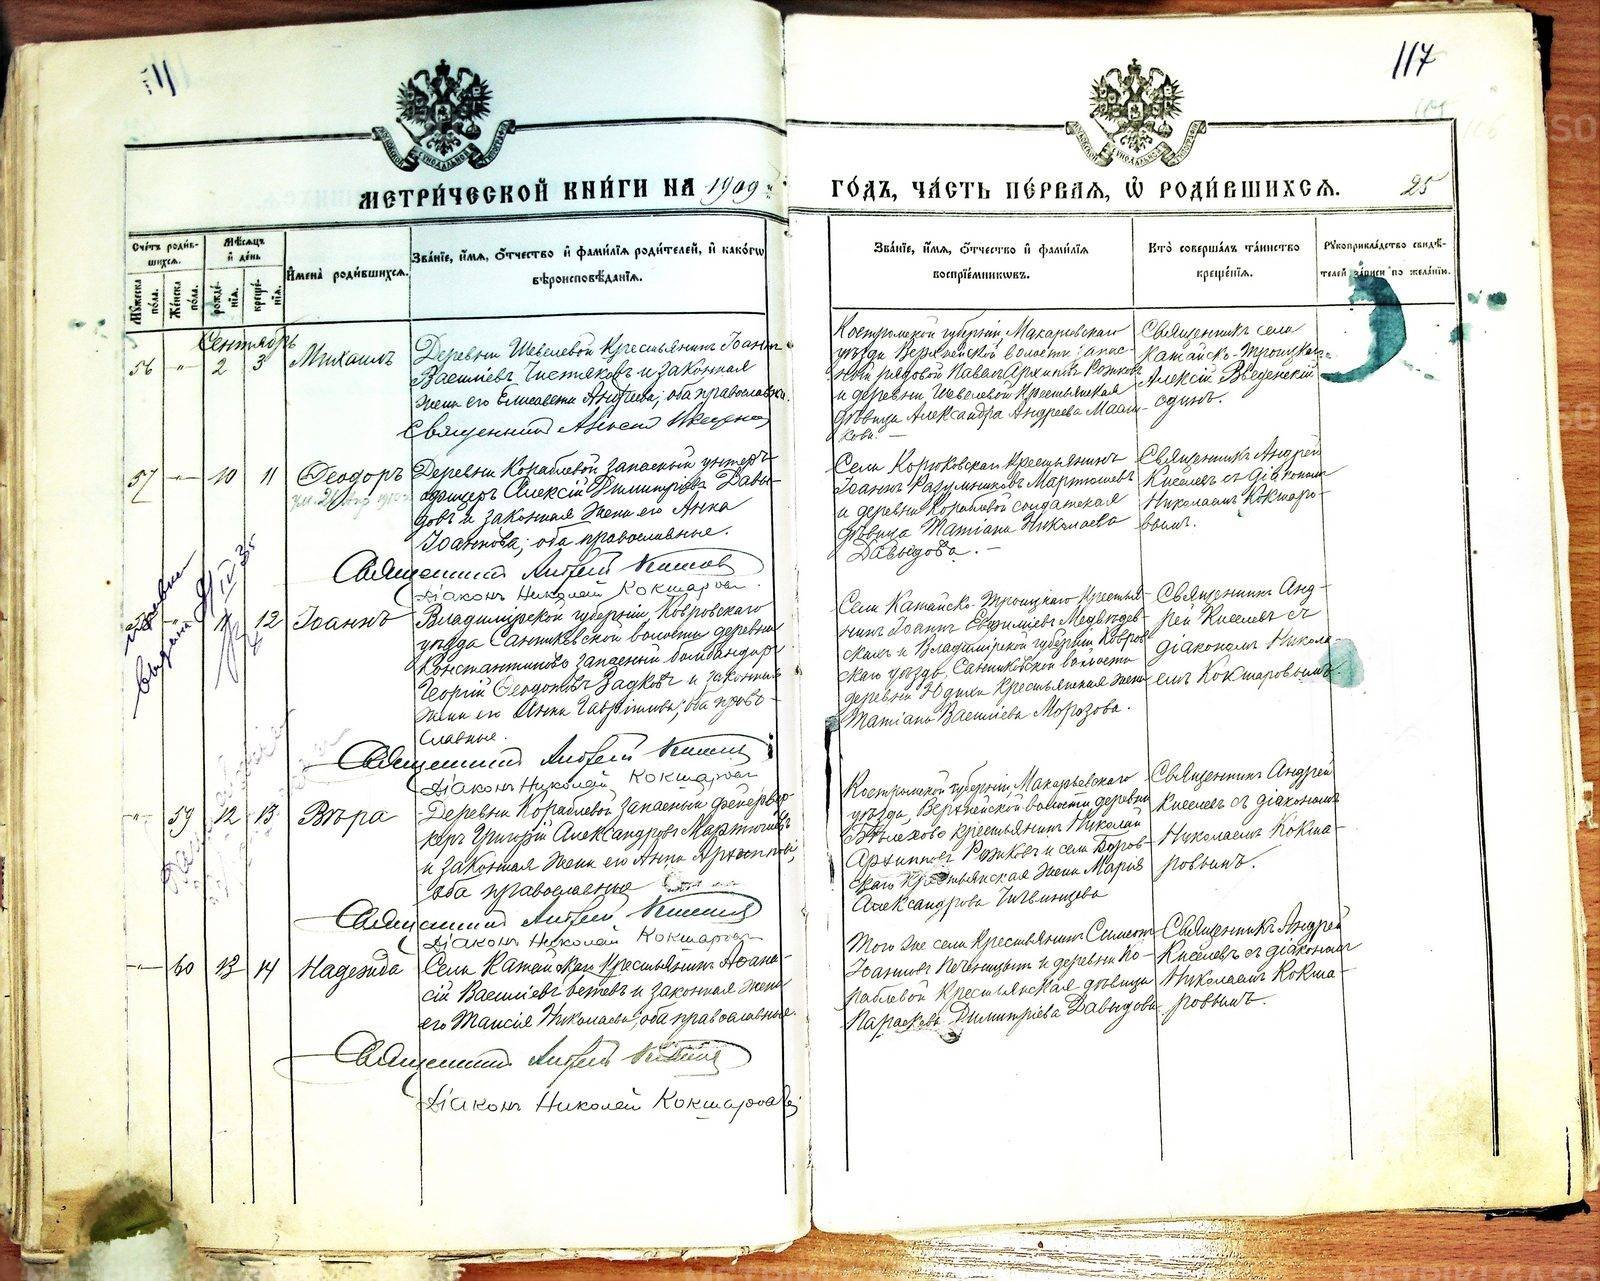 117
25
МЕТРИ́ЧЕСКОЙ КНИ́ГИ НА 1909
ГО́ДЪ, ЧА́СТЬ ПЕ́РВАЯ, Ѡ РОДИ́ВШИХСЯ.
Сче́тъ роди́в-
шихся.
Му́жеска по́ла.
Же́нска по́ла.
Мѣ́сяцъ и де́нь
рожде́-
нїя.
креще́-
нїя.
И҆мена̀ роди́вшихся.
Зва́нїе, и҆́мя, ѻ҆́тчество и҆ фами́лїя роди́телей, и҆ како́гѡ
вѣроисповѣ́данїя.
Зва́нїе, и҆́мя, ѻ҆́тчество и҆ фами́лїя
воспрїе́мникѡвъ.
Кто̀ соверша́лъ та́инство
креще́нїя.
Рꙋкоприкла́дство свидѣ́-
телей за́писи по жела́нїю.
Сентябрь
56 -"- 2 3 Михаилъ
Деревни Шевелевой Крестьянинъ Іоаннъ
Васильевъ Чистяковъ и законная
жена его Елисавета Андреева; оба православн.
Священникъ Алексій Введенскій
Костромской губерніи, Макарьевскаго
уѣзда Верхнейской волости запас-
ный рядовой Павелъ Архиповъ Рожковъ
и деревни Шевелевой Крестьянская
дѣвица Александра Андреева
Священникъ села
Катайско-Троицкаго
Алексій Введенскій
одинъ.
57 -"- 10 11 Ѳеодоръ
Деревни Кораблевой запасный унтеръ-
офицеръ Алексій Димитріевъ Давы-
довъ и законная жена его Анна
Іоаннова; оба православные.
Священникъ Андрей Киселевъ
Діаконъ Николай Кокшаровъ
Села Корюковскаго Крестьянинъ
Іоаннъ Разумниковъ Мартюшевъ
и деревни Кораблевой солдатская
дѣвица Татіана Николаева
Давыдова. -
Священникъ Андрей
Киселевъ съ діакономъ
Николаемъ Кокшаро-
вымъ.
выдана
12 Іоаннъ
Владимірской губерніи, Ковровскаго
уѣзда Санниковской волости деревни
Константиново запасный бомбандиръ
Георгій Ѳеодотовъ Задковъ и законная
жена его Анна Гавріилова; оба право-
славные.
Священникъ Андрей Киселевъ
Діаконъ Николай Кокшаровъ
Села Катайско-Троицкаго Крестья-
нинъ Іоаннъ Евфиміевъ Медвѣдев-
скихъ и Владимірской губерніи, Ковров-
скаго уѣзда, Санниковской волости
деревни Юдихи Крестьянская жена
Татіана Васильева Морозова.
Священникъ Анд-
рей Киселевъ съ
діакономъ Никола-
емъ Кокшаровымъ.
-"- 59 12 13 Вѣра
Деревни Кораблевой запасный фейервер-
керъ Григорій Александровъ Мартюшевъ
и законная жена его Анна Архиппова,
оба православные
Священникъ Андрей Киселевъ
Діаконъ Николай Кокшаровъ
Костромской губерніи, Макарьевскаго
уѣзда, Верхнейской волости деревни
крестьянинъ Николай
Архипповъ Рожковъ и села Боров-
скаго Крестьянская жена Марія
Александрова
Священникъ Андрей
Киселевъ съ діакономъ
Николаемъ Кокша-
ровымъ.
-"- 60 13 14 Надежда
Села Катайскаго Крестьянинъ Аѳана-
сій Васильевъ и законная жена
его Таисія Николаева; оба православные.
Священникъ Андрей Киселевъ
Діаконъ Николай Кокшаровъ
Того же села Крестьянинъ Симеонъ
Іоанновъ Печеницынъ и деревни Ко-
раблевой Крестьянская дѣвица
Параскева Димитріева Давыдова
Священникъ Андрей
Киселевъ съ діакономъ
Николаемъ Кокша-
ровымъ.